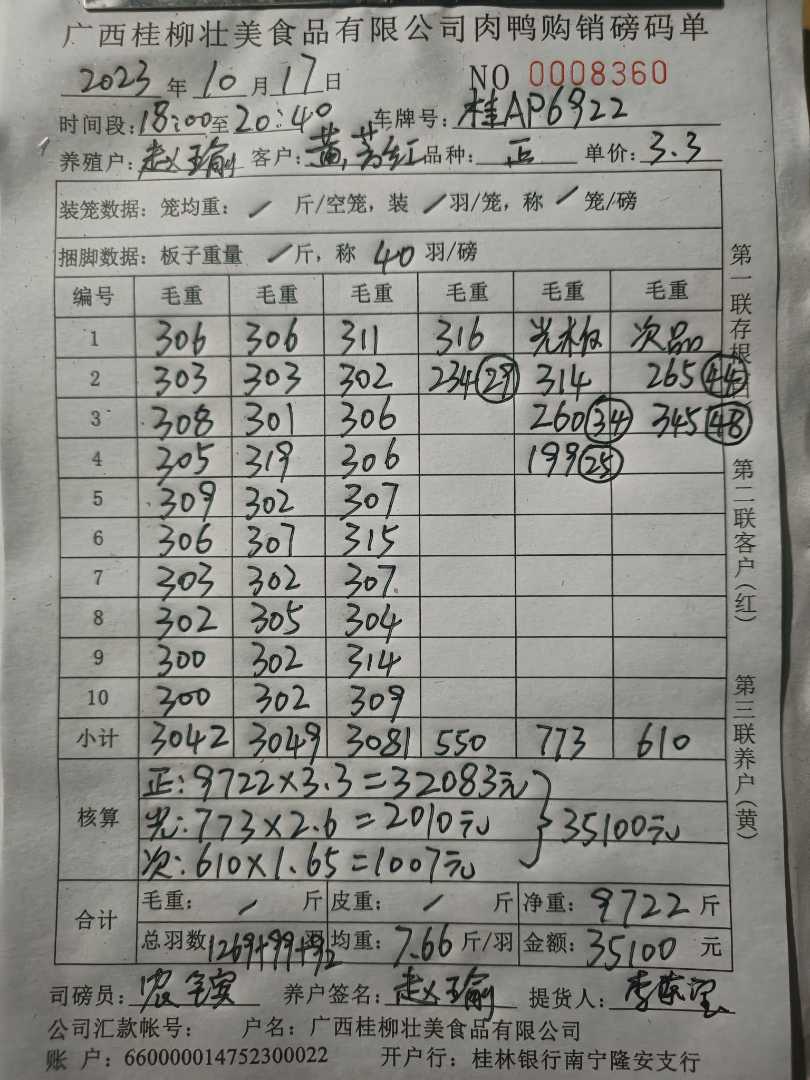 广西桂柳壮美食品有限公司肉鸭购销磅码单
2023 年 10 月 17 日 NO 0008360
时间段: 18:00 至 20:40 车牌号: 桂AP6922
养殖户: 赵瑜 客户: 黄芳红 品种: 正 单价: 3.3
装笼数据: 笼均重: / 斤/空笼, 装 / 羽/笼, 称 / 笼/磅
捆脚数据: 板子重量 / 斤, 称 40 羽/磅
编号 毛重 毛重 毛重 毛重 毛重 毛重
1 306 306 311 316 光板 次品
2 303 303 302 234 (29) 314 265 (44)
3 308 301 306 260 (34) 345 (48)
4 305 319 306 199 (25)
5 309 302 307
6 306 307 315
7 303 302 307
8 302 305 304
9 300 302 314
10 300 302 309
小计 3042 3049 3081 550 773 610
核算 正: 9722×3.3=32083元
光: 773×2.6=2010元 } 35100元
次: 610×1.65=1007元
合计 毛重: / 斤 皮重: / 斤 净重: 9722 斤
总羽数 1269+99+92 羽 均重: 7.66 斤/羽 金额: 35100 元
司磅员: 养户签名: 赵瑜 提货人:
公司汇款帐号: 户名: 广西桂柳壮美食品有限公司
账 户: 660000014752300022 开户行: 桂林银行南宁隆安支行
第一联存根
第二联客户(红)
第三联养户(黄)